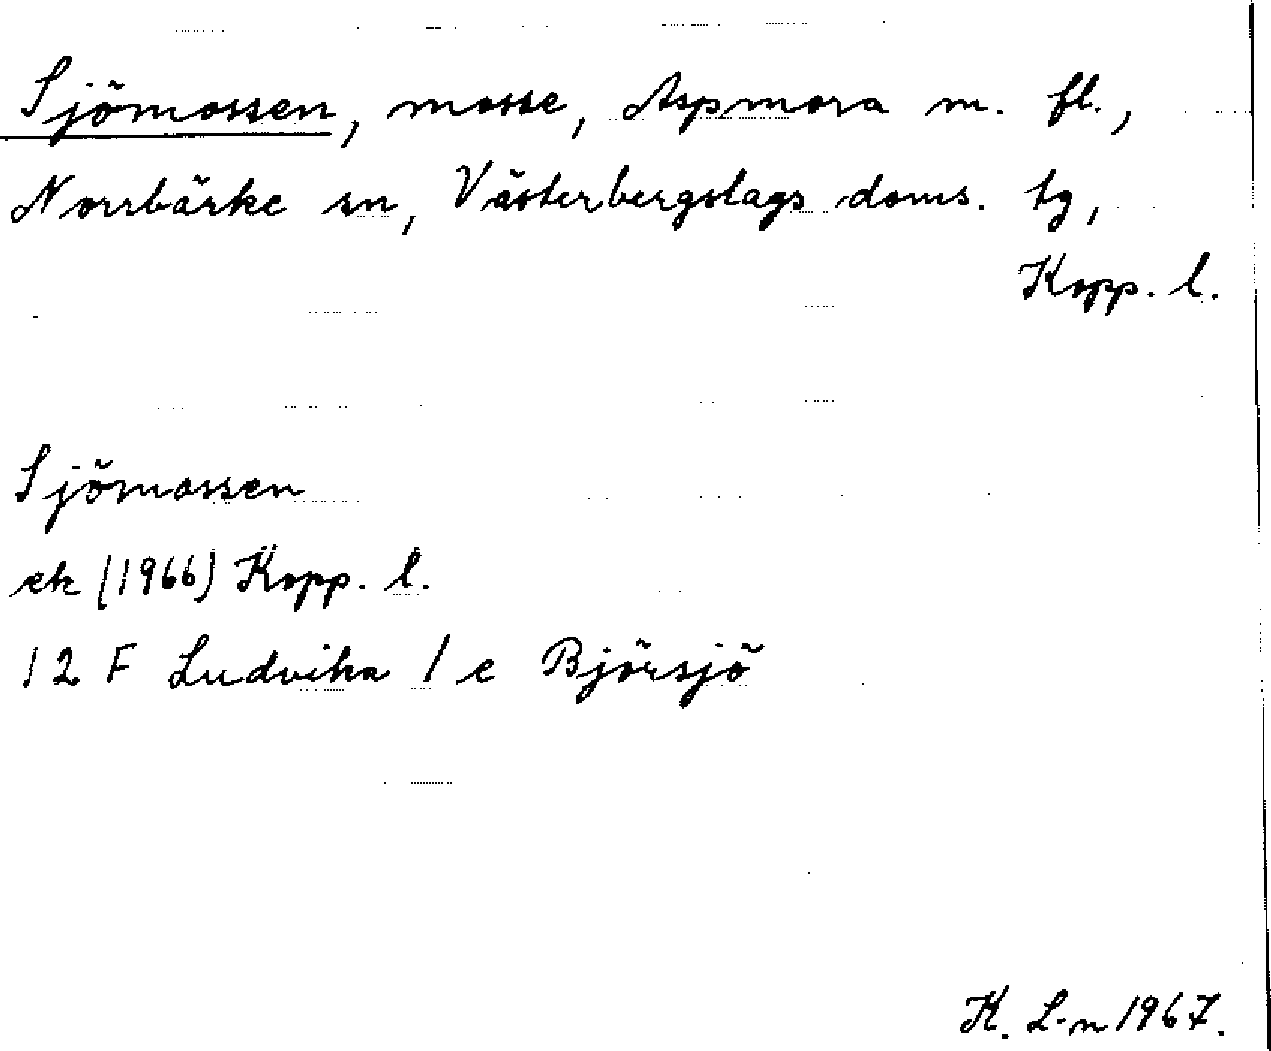 Sjömossen, mosse, Aspmora m. fl.,
Norrbärke sn, Västerbergslags doms. tg,
Kopp. l.
Sjömossen
ek (1966) Kopp. l.
12 F Ludvika 1 e Björsjö
K. L-n 1967.